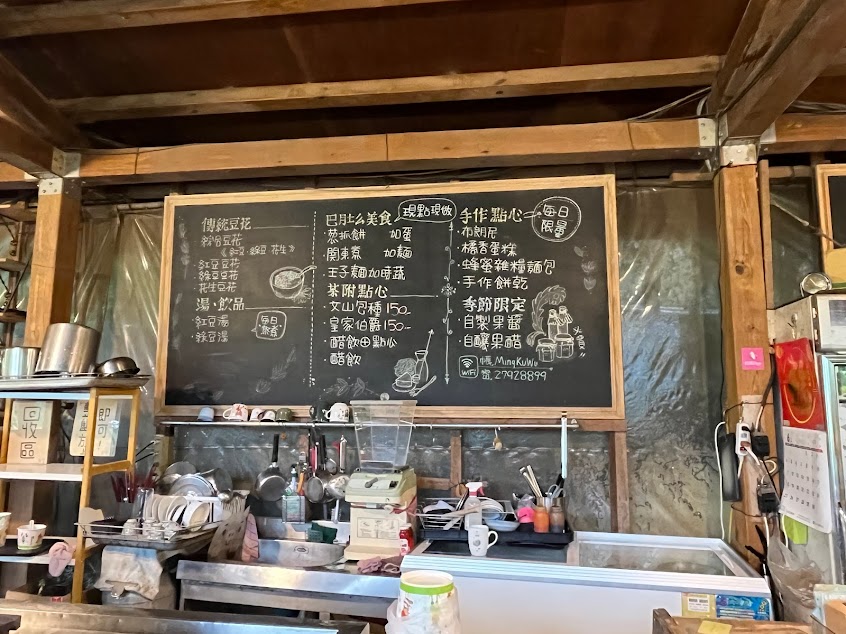 傳統豆花
綜合豆花
《紅豆·綠豆·花生》
·紅豆豆花
·綠豆豆花
·花生豆花
湯·飲品
·紅豆湯
·綠豆湯
每日
熬煮
巴肚么美食
現點現做
·蔥抓餅 加蛋
·關東煮 加麵
·王子麵加時蔬
茶附點心
·文山包種150
·皇家伯爵150
·醋飲田點心
·醋飲
手作點心
每日
限量
·布朗尼
·橘香蛋糕
·蜂蜜雜糧麵包
·手作餅乾
季節限定
·自製果醬
·自釀果醋
WiFi
帳.MingKuWu
密.27928899
回收區
即可